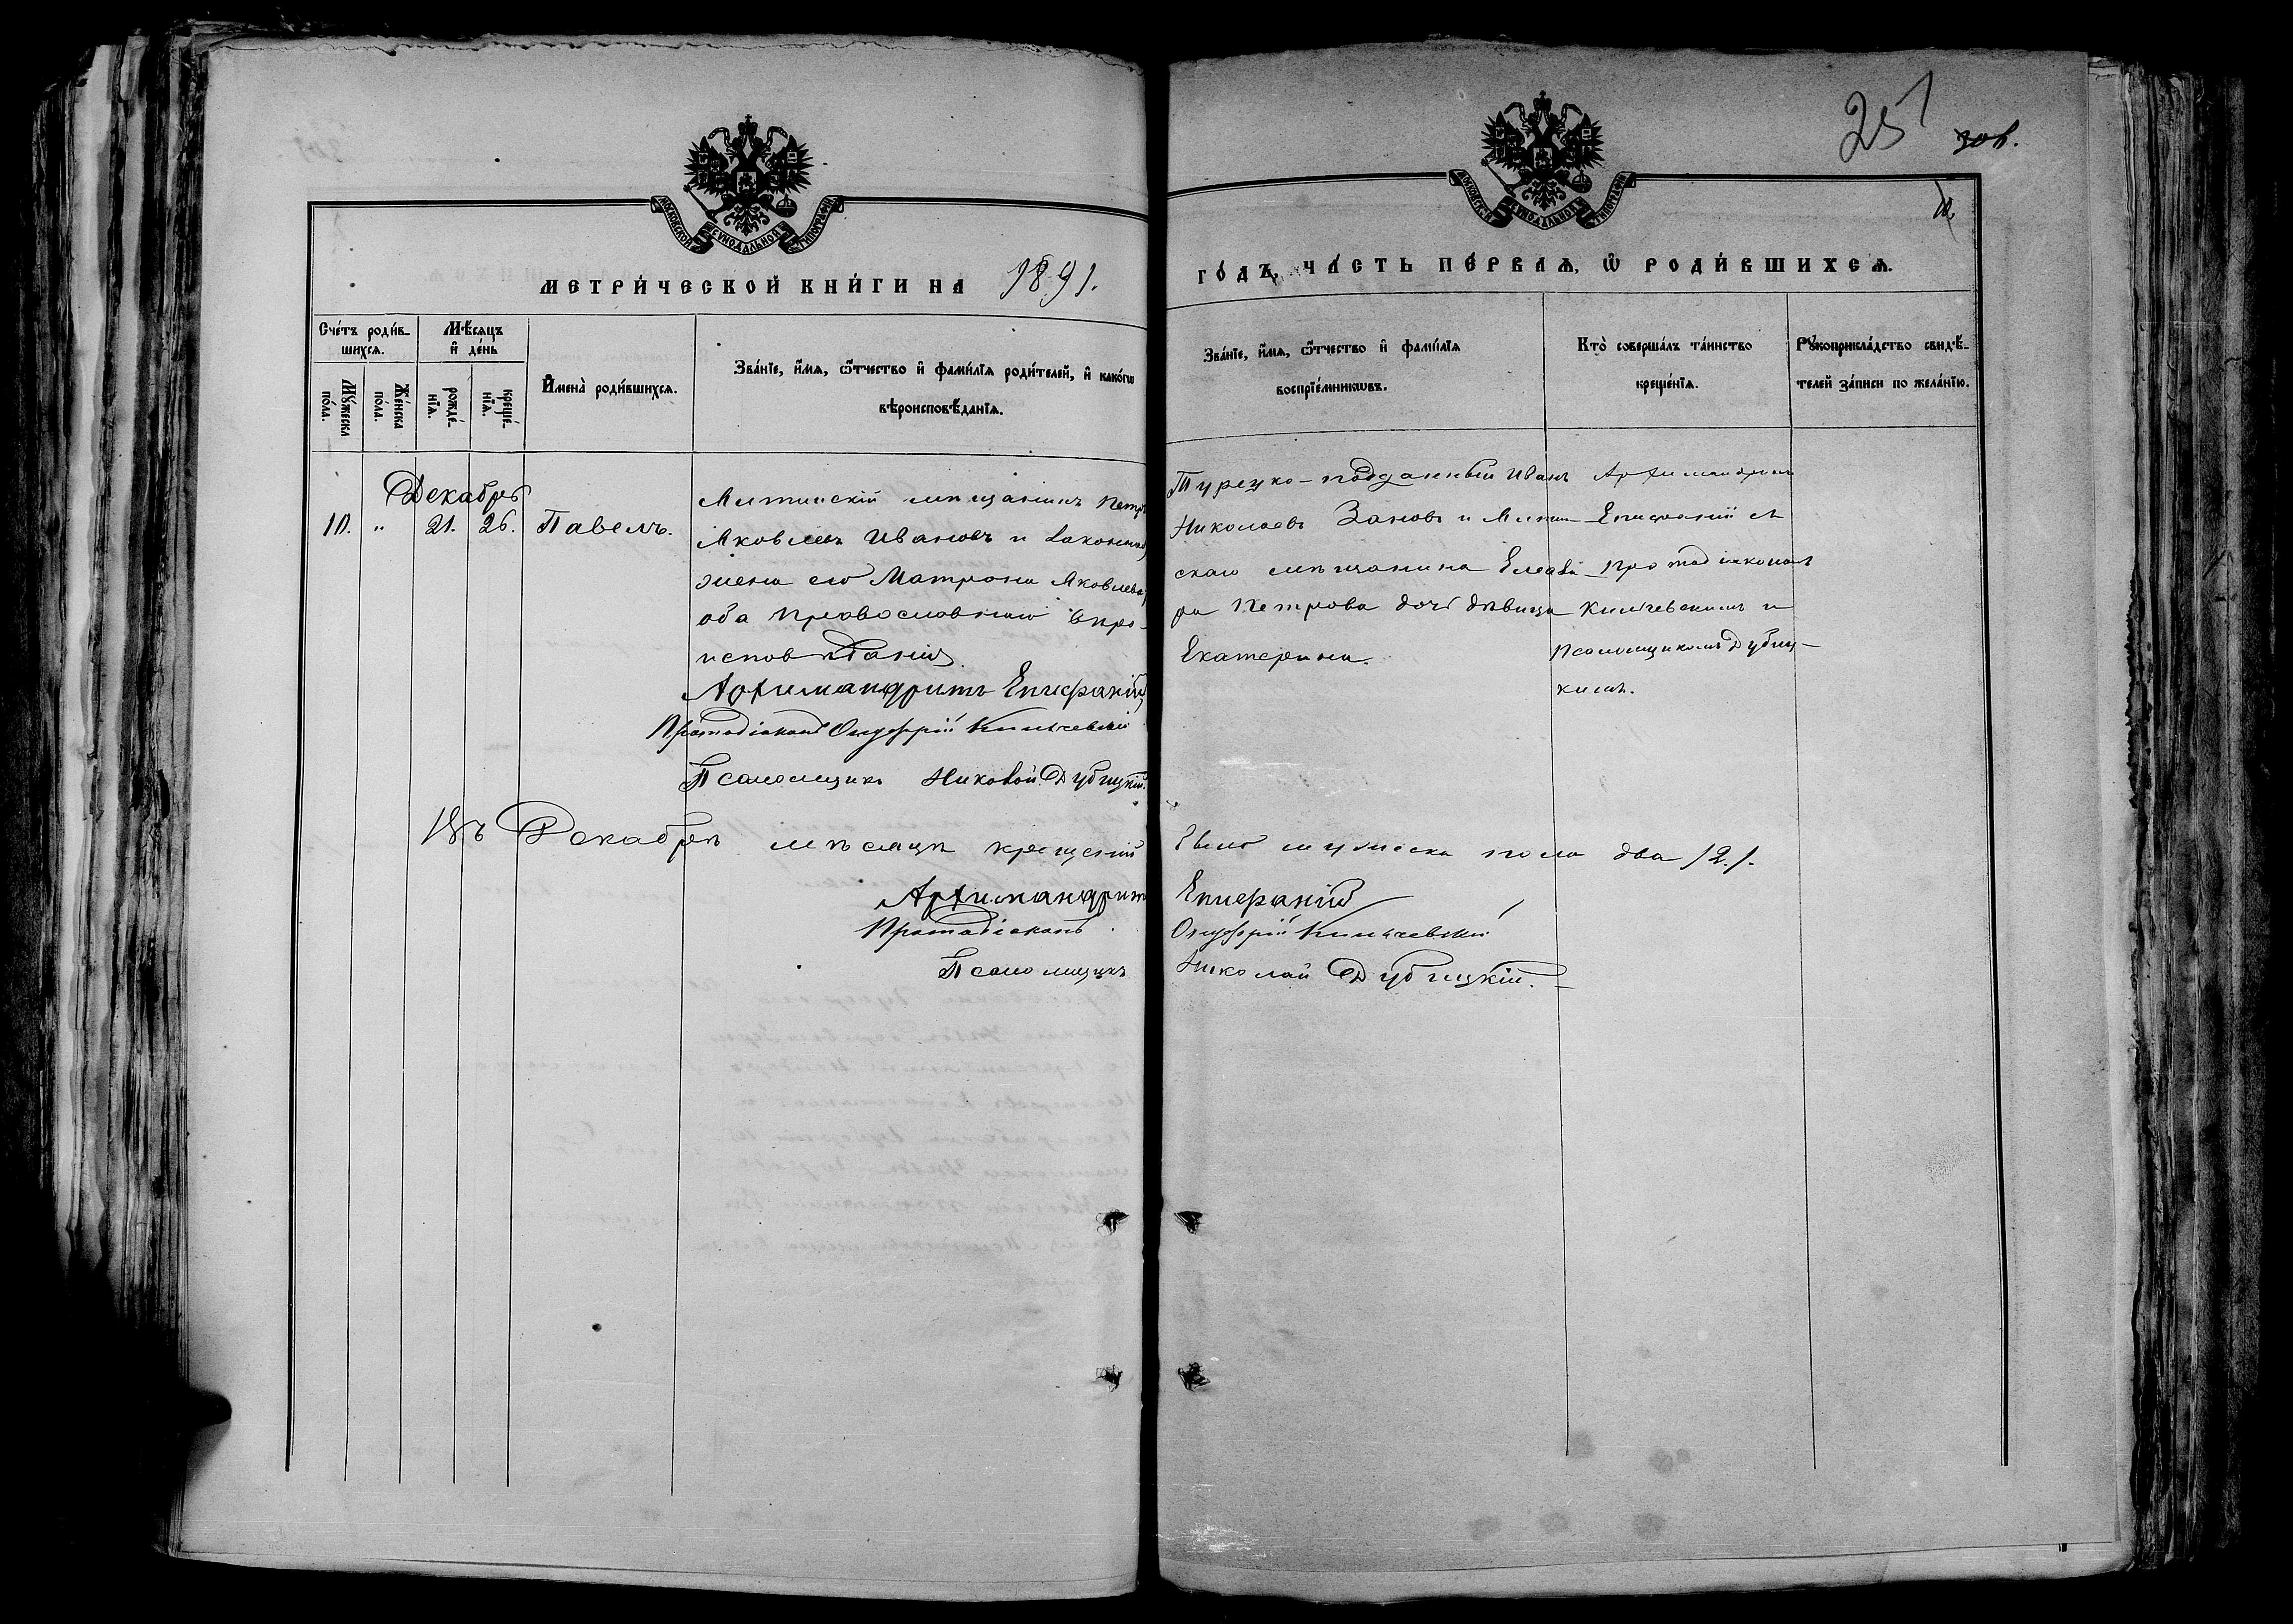 251
308.
МОСКОВСКОЙ СѴНОДАЛЬНОЙ ТИПОГРАФІИ
МОСКОВСКОЙ СѴНОДАЛЬНОЙ ТИПОГРАФІИ
МЕТРИ́ЧЕСКОЙ КНИ́ГИ НА 1891. ГО́ДЪ, ЧА́СТЬ ПЕ́РВАѦ, Ѡ҆ РОДИ́ВШИХСѦ.
Сче́тъ роди́в-
шихсѧ.
Мꙋ́жеска по́ла.
Же́нска по́ла.
Мѣ́сѧцъ
и҆ де́нь
рожде́-
нїѧ.
креще́-
нїѧ.
И҆мена̀ роди́вшихсѧ.
Зва́нїе, и҆́мѧ, ѻ҆́тчество и҆ фами́лїѧ роди́телей, и҆ како́гѡ
вѣроисповѣ́данїѧ.
Зва́нїе, и҆́мѧ, ѻ҆́тчество и҆ фами́лїѧ
воспрїе́мникѡвъ.
Кто̀ соверша́лъ та́инство
креще́нїѧ.
Рꙋкоприкла́дство свидѣ́-
телей за́писи по жела́нїю.
Декабрь
10. " 21. 26. Павелъ.
мѣщанинъ Петръ
Яковлевъ Ивановъ и законная
жена его Матрона Яковлева,
оба православнаго вѣро-
исповѣданія.
Архимандритъ Епифаній
Протодіаконъ Онуфрій
Псаломщикъ Николай Дубицкій.
Турецко-подданный Иванъ
Николаевъ Зановъ и
скаго мѣщанина
ра Петрова дочь дѣвица
Екатерина.
Архимандритъ
Епифаній съ
протодіакономъ
и
псаломщикомъ Дубиц-
кимъ.
Въ Декабрѣ мѣсяцѣ крещеній было мужеска пола два /2/.
Архимандритъ Епифаній
Протодіаконъ Онуфрій
Псаломщикъ Николай Дубицкій.